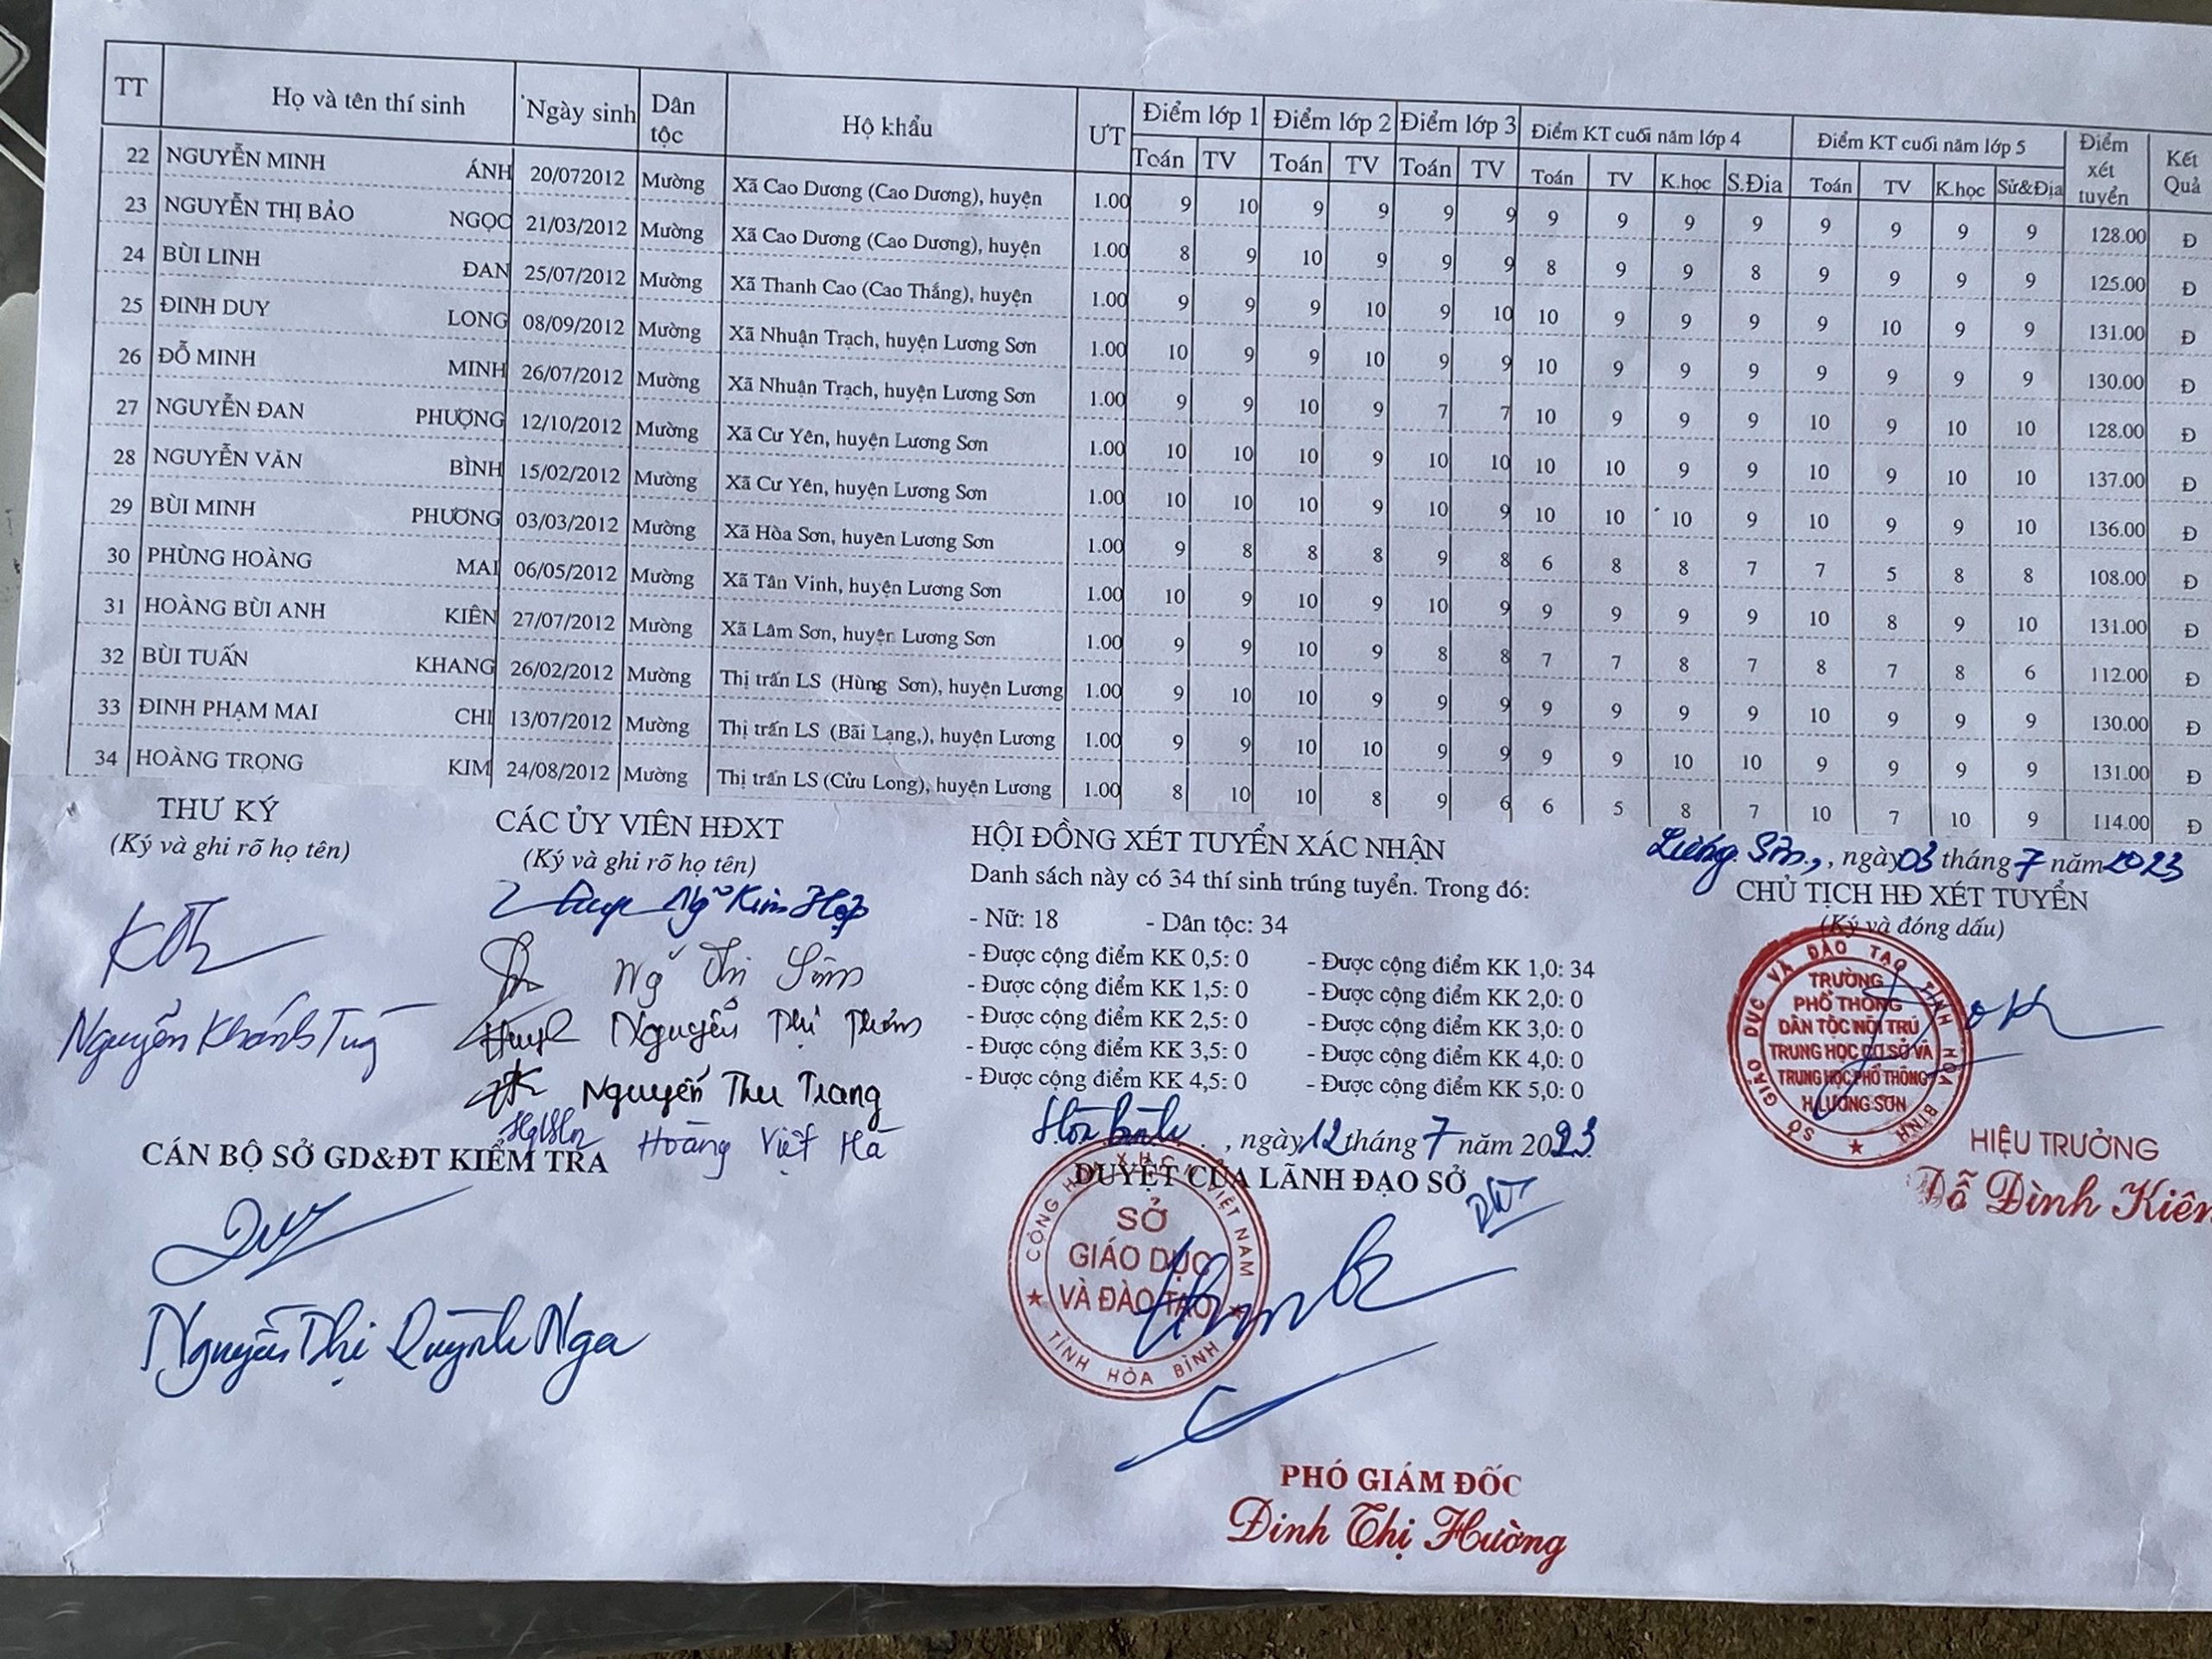 TT Họ và tên thí sinh Ngày sinh Dân tộc Hộ khẩu ƯT Điểm lớp 1 Điểm lớp 2 Điểm lớp 3 Điểm KT cuối năm lớp 4 Điểm KT cuối năm lớp 5 Điểm xét tuyển Kết Quả
Toán TV Toán TV Toán TV Toán TV K.học S.Địa Toán TV K.học Sử&Địa
22 NGUYỄN MINH ÁNH 20/072012 Mường Xã Cao Dương (Cao Dương), huyện 1.00 9 10 9 9 9 9 9 9 9 9 9 9 9 9 128.00 Đ
23 NGUYỄN THỊ BẢO NGỌC 21/03/2012 Mường Xã Cao Dương (Cao Dương), huyện 1.00 8 9 10 9 9 9 8 9 9 8 9 9 9 9 125.00 Đ
24 BÙI LINH ĐAN 25/07/2012 Mường Xã Thanh Cao (Cao Thắng), huyện 1.00 9 9 9 10 9 10 10 9 9 9 9 10 9 9 131.00 Đ
25 ĐINH DUY LONG 08/09/2012 Mường Xã Nhuận Trạch, huyện Lương Sơn 1.00 10 9 9 10 9 9 10 9 9 9 9 9 9 9 130.00 Đ
26 ĐỖ MINH MINH 26/07/2012 Mường Xã Nhuận Trạch, huyện Lương Sơn 1.00 9 9 10 9 7 7 10 9 9 9 10 9 10 10 128.00 Đ
27 NGUYỄN ĐAN PHƯỢNG 12/10/2012 Mường Xã Cư Yên, huyện Lương Sơn 1.00 10 10 10 9 10 10 10 10 9 9 10 9 10 10 137.00 Đ
28 NGUYỄN VĂN BÌNH 15/02/2012 Mường Xã Cư Yên, huyện Lương Sơn 1.00 10 10 10 9 10 9 10 10 10 9 10 9 9 10 136.00 Đ
29 BÙI MINH PHƯƠNG 03/03/2012 Mường Xã Hòa Sơn, huyện Lương Sơn 1.00 9 8 8 8 9 8 6 8 8 7 7 5 8 8 108.00 Đ
30 PHÙNG HOÀNG MAI 06/05/2012 Mường Xã Tân Vinh, huyện Lương Sơn 1.00 10 9 10 9 10 9 9 9 9 9 10 8 9 10 131.00 Đ
31 HOÀNG BÙI ANH KIÊN 27/07/2012 Mường Xã Lâm Sơn, huyện Lương Sơn 1.00 9 9 10 9 8 8 7 7 8 7 8 7 8 6 112.00 Đ
32 BÙI TUẤN KHANG 26/02/2012 Mường Thị trấn LS (Hùng Sơn), huyện Lương 1.00 9 10 10 9 9 9 9 9 9 9 10 9 9 9 130.00 Đ
33 ĐINH PHẠM MAI CHI 13/07/2012 Mường Thị trấn LS (Bãi Lạng,), huyện Lương 1.00 9 9 10 10 9 9 9 9 10 10 9 9 9 9 131.00 Đ
34 HOÀNG TRỌNG KIM 24/08/2012 Mường Thị trấn LS (Cửu Long), huyện Lương 1.00 8 10 10 8 9 6 6 5 8 7 10 7 10 9 114.00 Đ
THƯ KÝ
(Ký và ghi rõ họ tên)
Nguyễn Khánh Tùng
CÁC ỦY VIÊN HĐXT
(Ký và ghi rõ họ tên)
Ng Kim
Ng Thi
Nguyễn Thị Thơm
Nguyễn Thu Trang
Hoàng Việt Hà
HỘI ĐỒNG XÉT TUYỂN XÁC NHẬN
Danh sách này có 34 thí sinh trúng tuyển. Trong đó:
- Nữ: 18 - Dân tộc: 34
- Được cộng điểm KK 0,5: 0 - Được cộng điểm KK 1,0: 34
- Được cộng điểm KK 1,5: 0 - Được cộng điểm KK 2,0: 0
- Được cộng điểm KK 2,5: 0 - Được cộng điểm KK 3,0: 0
- Được cộng điểm KK 3,5: 0 - Được cộng điểm KK 4,0: 0
- Được cộng điểm KK 4,5: 0 - Được cộng điểm KK 5,0: 0
Lương Sơn, ngày 03 tháng 7 năm 2023
CHỦ TỊCH HĐ XÉT TUYỂN
(Ký và đóng dấu)
SỞ GIÁO DỤC VÀ ĐÀO TẠO TỈNH HÒA BÌNH
TRƯỜNG
PHỔ THÔNG
DÂN TỘC NỘI TRÚ
TRUNG HỌC CƠ SỞ VÀ
TRUNG HỌC PHỔ THÔNG
H.LƯƠNG SƠN
HIỆU TRƯỞNG
Đỗ Đình Kiên
CÁN BỘ SỞ GD&ĐT KIỂM TRA
Nguyễn Thị Quỳnh Nga
Hòa Bình, ngày 12 tháng 7 năm 2023
DUYỆT CỦA LÃNH ĐẠO SỞ
CỘNG HÒA X.H.C.N VIỆT NAM
SỞ
GIÁO DỤC
VÀ ĐÀO TẠO
TỈNH HÒA BÌNH
PHÓ GIÁM ĐỐC
Đinh Thị Hường